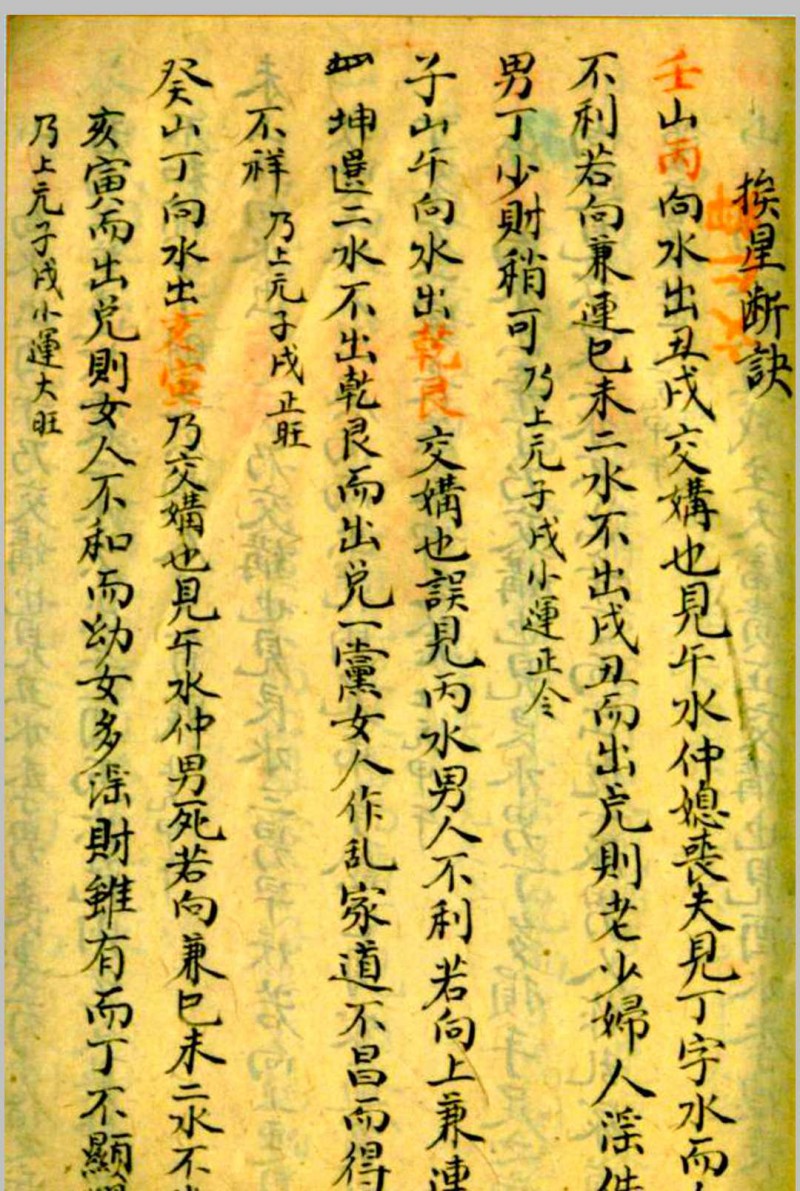 挨星断訣
壬山丙向水出丑戌交媾也見午水仲媳喪夫見丁字水而
不利若向兼連巳未二水不出戌丑而出兑則老少婦人淫
男丁少財稍可乃上元子戌小運正令
子山午向水出乾艮交媾也誤見丙水男人不利若向上兼連
坤選二水不出乾艮而出兑一黨女人作乱家道不昌而得
不祥乃上元子戌正旺
癸山丁向水出亥寅乃交媾也見午水仲男死若向兼巳未二水不
亥寅而出兑則女人不和而幼女多淫財雖有而丁不顯
乃上元子戌小運大旺